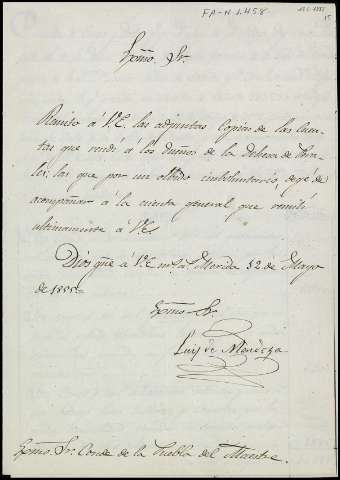 FA-N 1.458
Exmo. Sr.
Remito á V.E. las adjuntas Copias de las Cuen-
tas que rendí á los dueños de la Dehesa de
las que por un olbido imboluntario, dejé de
acompañar á la cuenta general que remití
ultimamente á V.E.
Dios gue. á V.E. ms. as. Merida 12 de Mayo
de 1885
Exmo. Sr.
Luis de Mendoza
Exmo. Sr. Conde de la Puebla del Maestre.